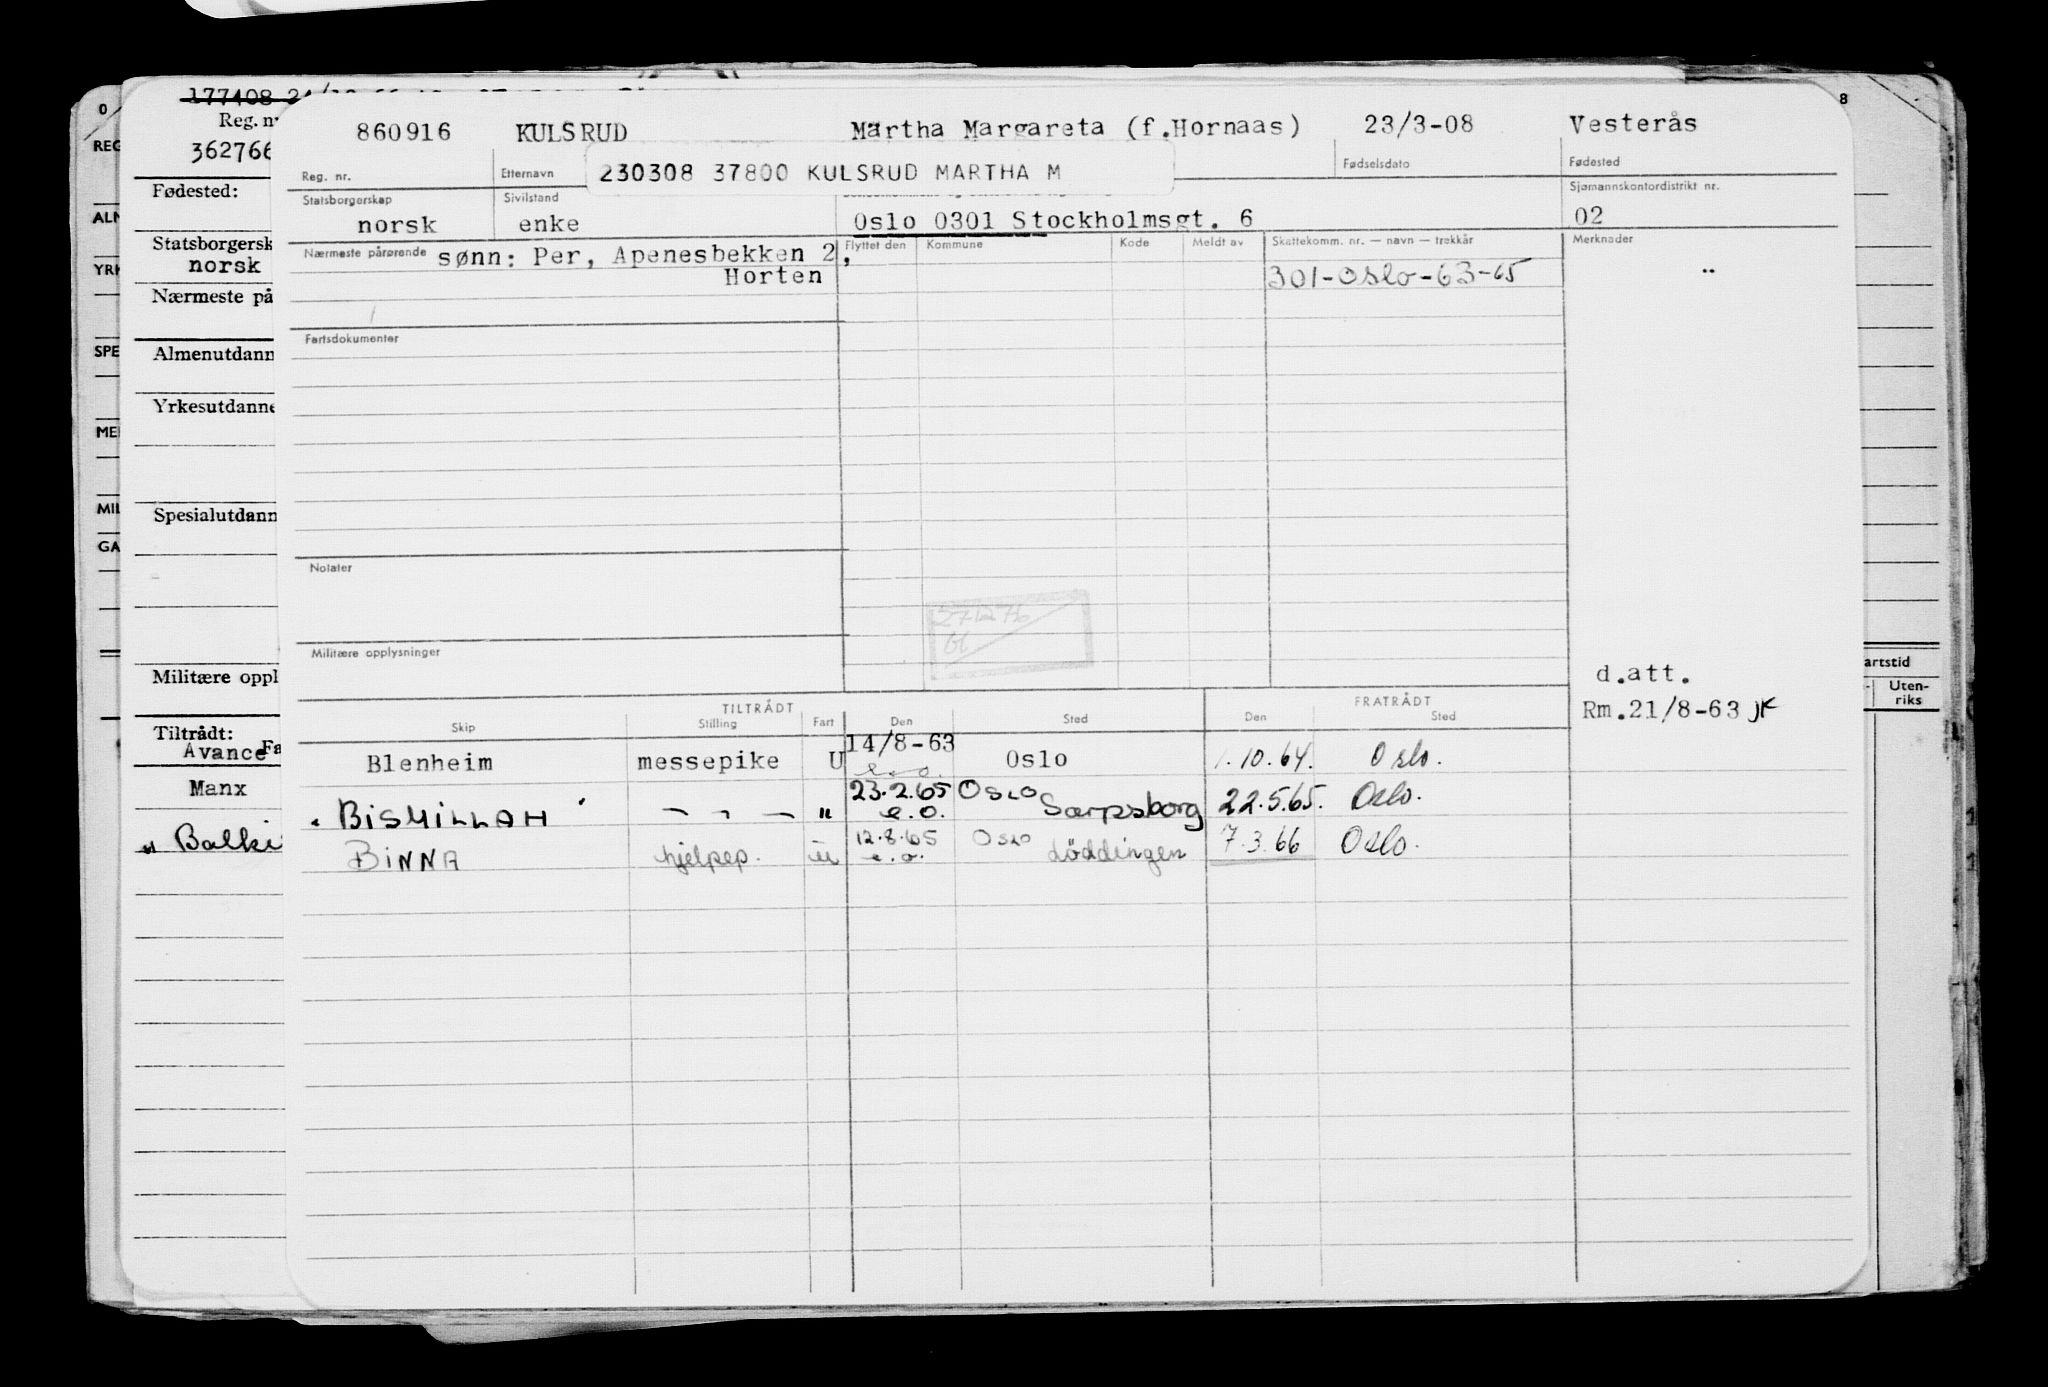 177408
Reg. n
362766
Fødested:
Statsborgersk
norsk
Nærmeste på
Almenutdann
Yrkesutdanne
Spesialutdann
Militære oppl
Tiltrådt:
Avance Fa
Manx
" Balki
0
REG
ALM
YRK
SPE
MEI
MIL
GA
8
artstid
Uten-
riks
860916 KULSRUD Martha Margareta (f.Hornaas) 23/3-08 Vesterås
Reg. nr. Etternavn Fødselsdato Fødested
230308 37800 KULSRUD MARTHA M
Statsborgerskap Sivilstand Sjømannskontordistrikt nr.
norsk enke Oslo 0301 Stockholmsgt. 6 02
Nærmeste pårørende sønn: Per, Apenesbekken 2,
Horten
Flyttet den Kommune Kode Meldt av Skattekomm. nr. — navn — trekkår Merknader
301-Oslo-63-65
Fartsdokumenter
Notater
271276
Militære opplysninger
d.att.
Rm.21/8-63 JK
TILTRÅDT FRATRÅDT
Skip Stilling Fart Den Sted Den Sted
Blenheim messepike U 14/8-63 Oslo 1.10.64. Oslo.
e.o.
"BISMILLAH" — " — " 23.2.65 Oslo 22.5.65. Oslo.
e.o. Sarpsborg
BINNA hjelpep. u 12.8.65 Oslo 7.3.66 Oslo.
e.o. Løddingen